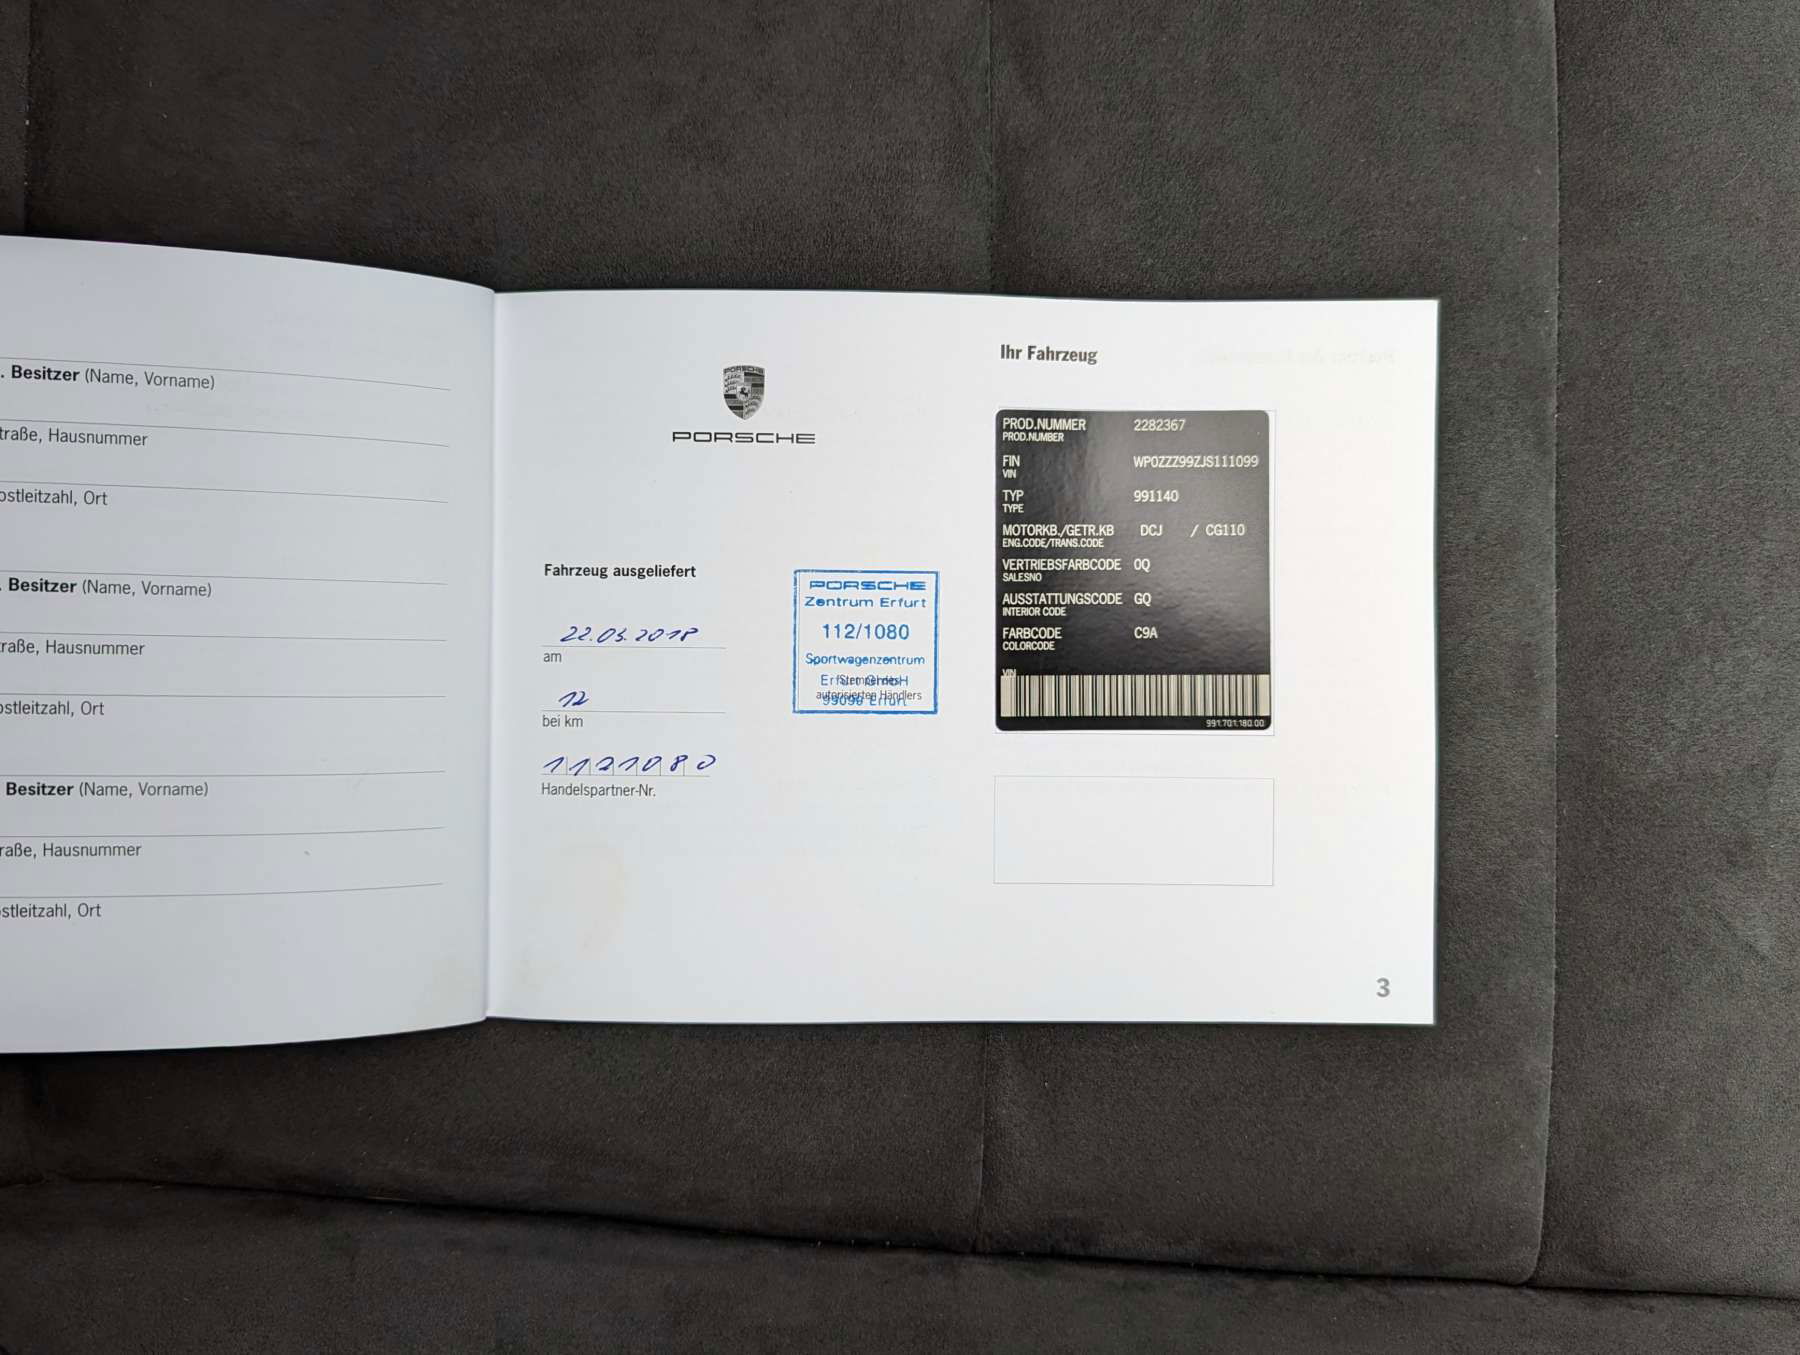 . Besitzer (Name, Vorname)
traße, Hausnummer
ostleitzahl, Ort
. Besitzer (Name, Vorname)
raße, Hausnummer
ostleitzahl, Ort
Besitzer (Name, Vorname)
raße, Hausnummer
ostleitzahl, Ort
PORSCHE
PORSCHE
Fahrzeug ausgeliefert
22.03.2018
am
12
bei km
1121080
Handelspartner-Nr.
PORSCHE
Zentrum Erfurt
112/1080
Sportwagenzentrum
Erfurt GmbH
Stempel des
autorisierten Händlers
99099 Erfurt
Ihr Fahrzeug
PROD.NUMMER 2282367
PROD.NUMBER
FIN WP0ZZZ99ZJS111099
VIN
TYP 991140
TYPE
MOTORKB./GETR.KB DCJ / CG110
ENG.CODE/TRANS.CODE
VERTRIEBSFARBCODE 0Q
SALESNO
AUSSTATTUNGSCODE GQ
INTERIOR CODE
FARBCODE C9A
COLORCODE
VIN
991.701.180.00
3